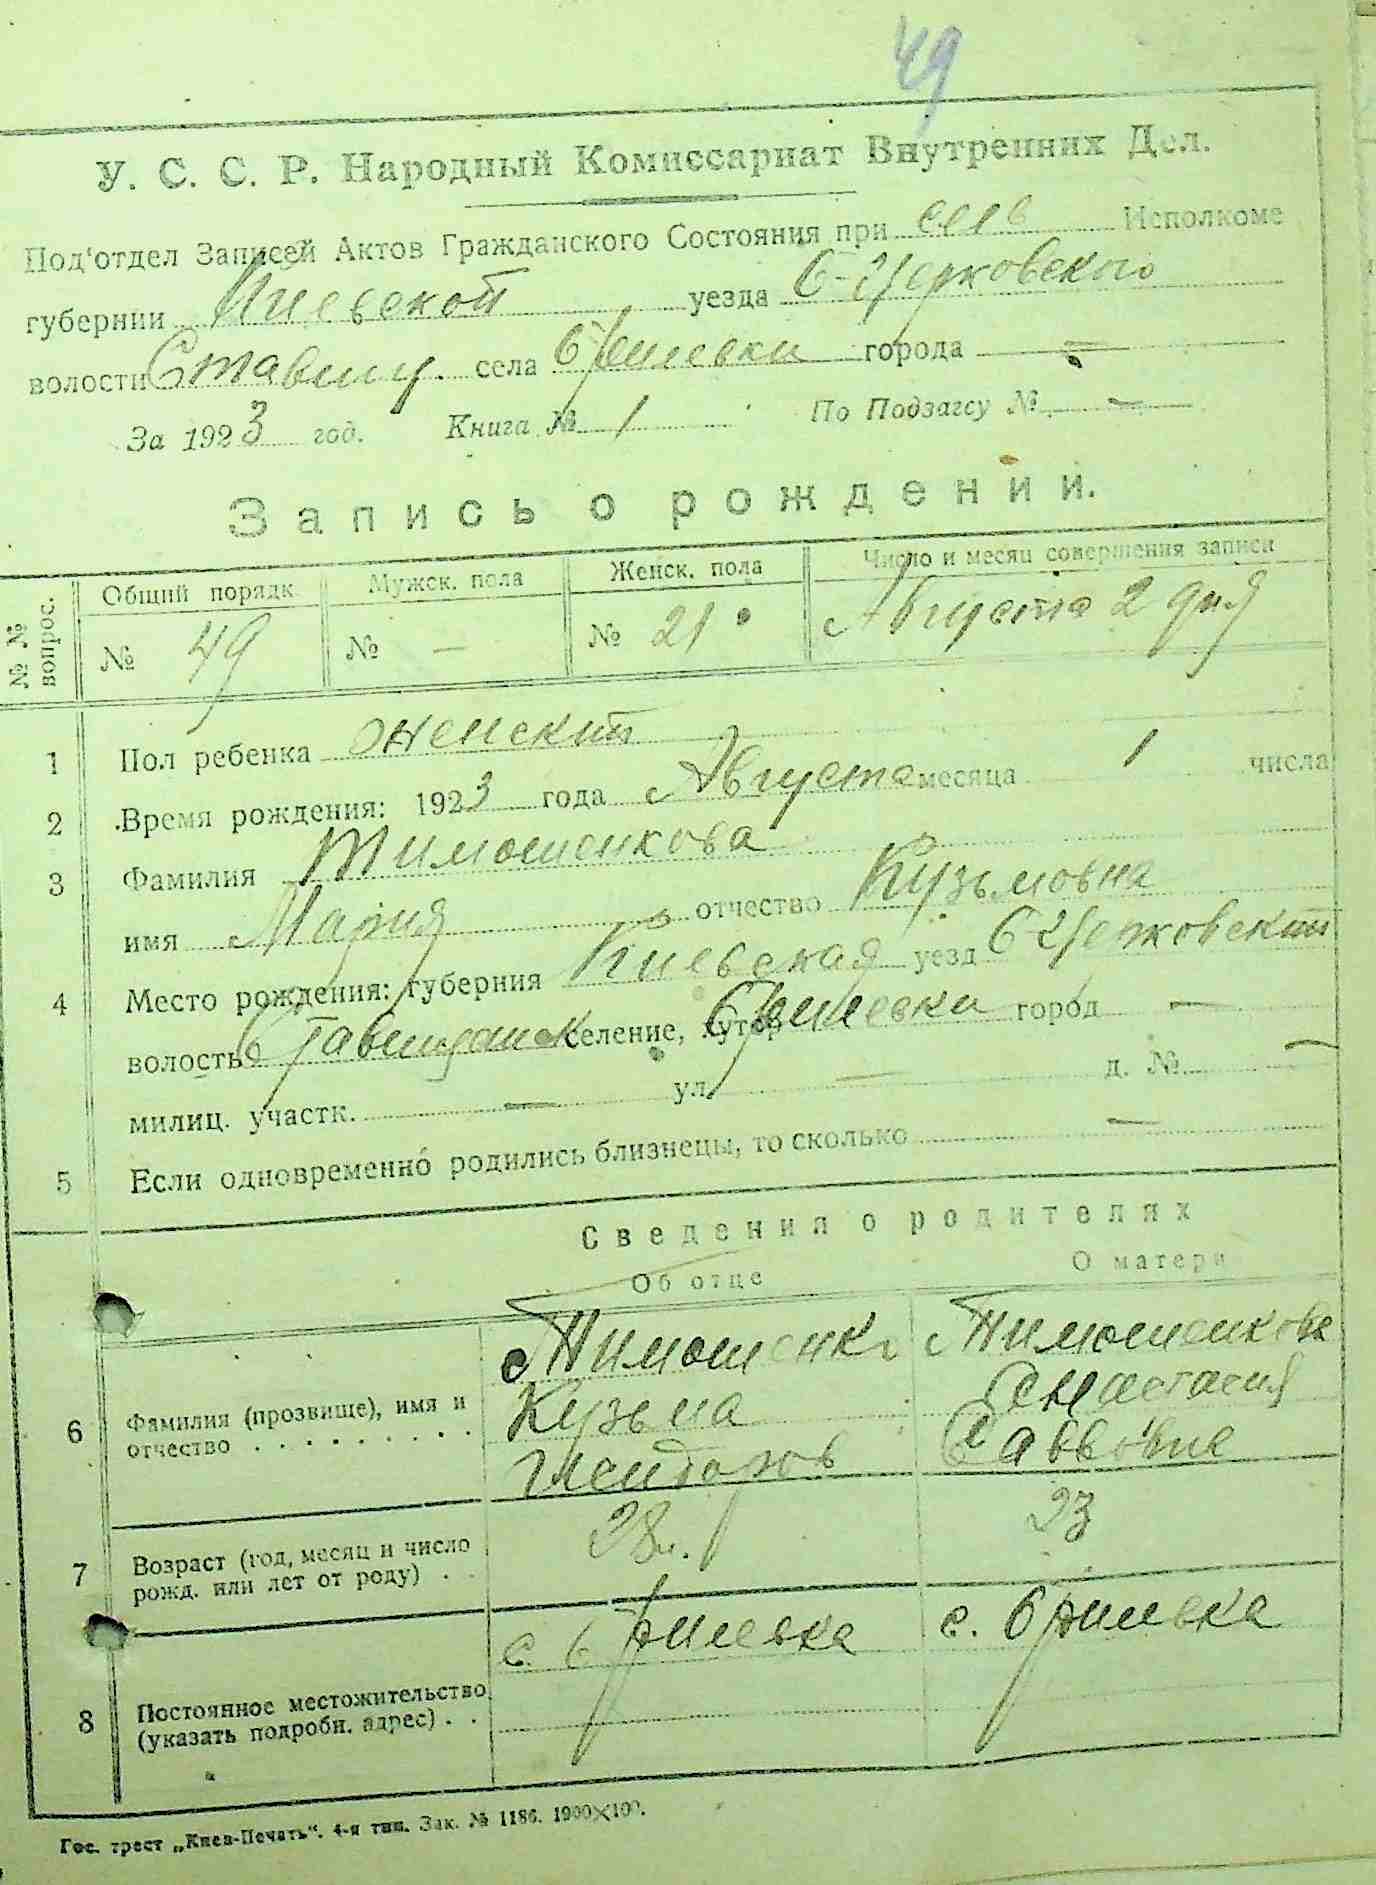 49
У. С. С. Р. Народный Комиссариат Внутренних Дел.
Под‘отдел Записей Актов Гражданского Состояния при Исполкоме
губернии Киевской уезда Б-Церковского
волости Ставищ. села Брилевки города —
За 1923 год. Книга № 1 По Подзагсу № —
Запись о рождении.
№ № вопрос.
Общий порядк. Мужск. пола Женск. пола Число и месяц совершения записи
№ 49 № — № 21 Августа 2 дня
1 Пол ребенка женский
2 Время рождения: 1923 года Августа месяца 1 числа
3 Фамилия Тимошенкова
имя Мария отчество Кузьмовна
4 Место рождения: губерния Киевская уезд Б-Церковский
волость Ставищанск селение, хутор Брилевки город —
милиц. участк. — ул. — д. № —
5 Если одновременно родились близнецы, то сколько —
Сведения о родителях
Об отце О матери
Тимошенко Тимошенкова
Кузьма Анастасия
6 Фамилия (прозвище), имя и
отчество . . . . . . . . . Саввовна
7 Возраст (год, месяц и число
рожд. или лет от роду) . . 28 л. 23
8 Постоянное местожительство
(указать подробн. адрес) . . с. Брилевка с. Брилевка
Гос. трест „Киев-Печать“. 4-я тип. Зак. № 1186. 1900×100.